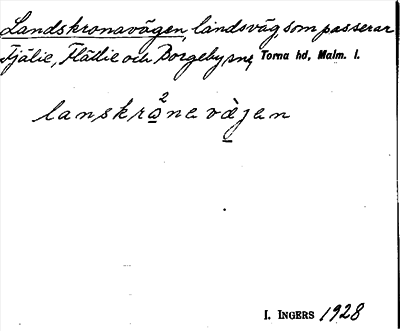 Landskronavägen, landsväg, som passerar
Fjälie, Flädie och Borgeby snr, Torna hd, Malm. l.
lanskro²na vàjen
I. INGERS 1928